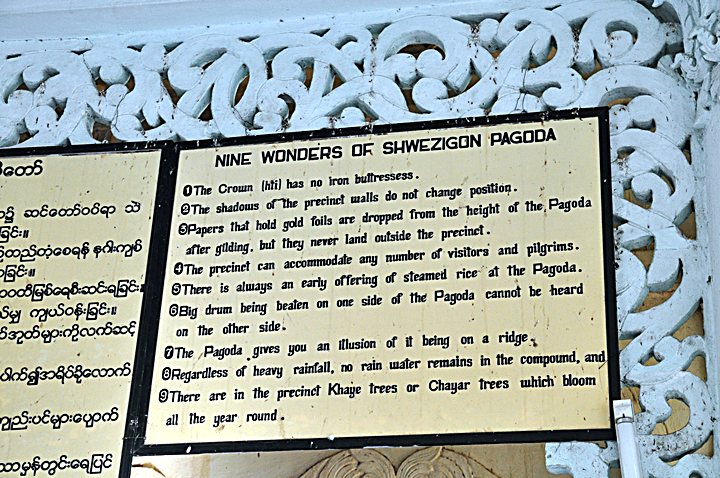 ဆင်တော်ဝပ်ရာ သဲ
ခြင်း။
တည်တံ့စေရန် နဂါးကျစ်
ခြင်း။
ဝတီမြစ်ရေစီးဆင်းရခြင်း။
မျှ ကျယ်ဝန်းခြင်း။
အုတ်များကိုလက်ဆင့်
ပါက်၍အရိပ်ခိုလောက်
ကျည်းပင်များပျောက်
မှန်တွင်းရေပြင်
NINE WONDERS OF SHWEZIGON PAGODA
1 The Crown (hti) has no iron buttressess.
2 The shadows of the precinct walls do not change position.
3 Papers that hold gold foils are dropped from the height of the Pagoda
after gilding, but they never land outside the precinct.
4 The precinct can accommodate any number of visitors and pilgrims.
5 There is always an early offering of steamed rice at the Pagoda.
6 Big drum being beaten on one side of the Pagoda cannot be heard
on the other side.
7 The Pagoda gives you an illusion of it being on a ridge.
8 Regardless of heavy rainfall, no rain water remains in the compound, and
9 There are in the precinct Khaye trees or Chayar trees which bloom
all the year round.